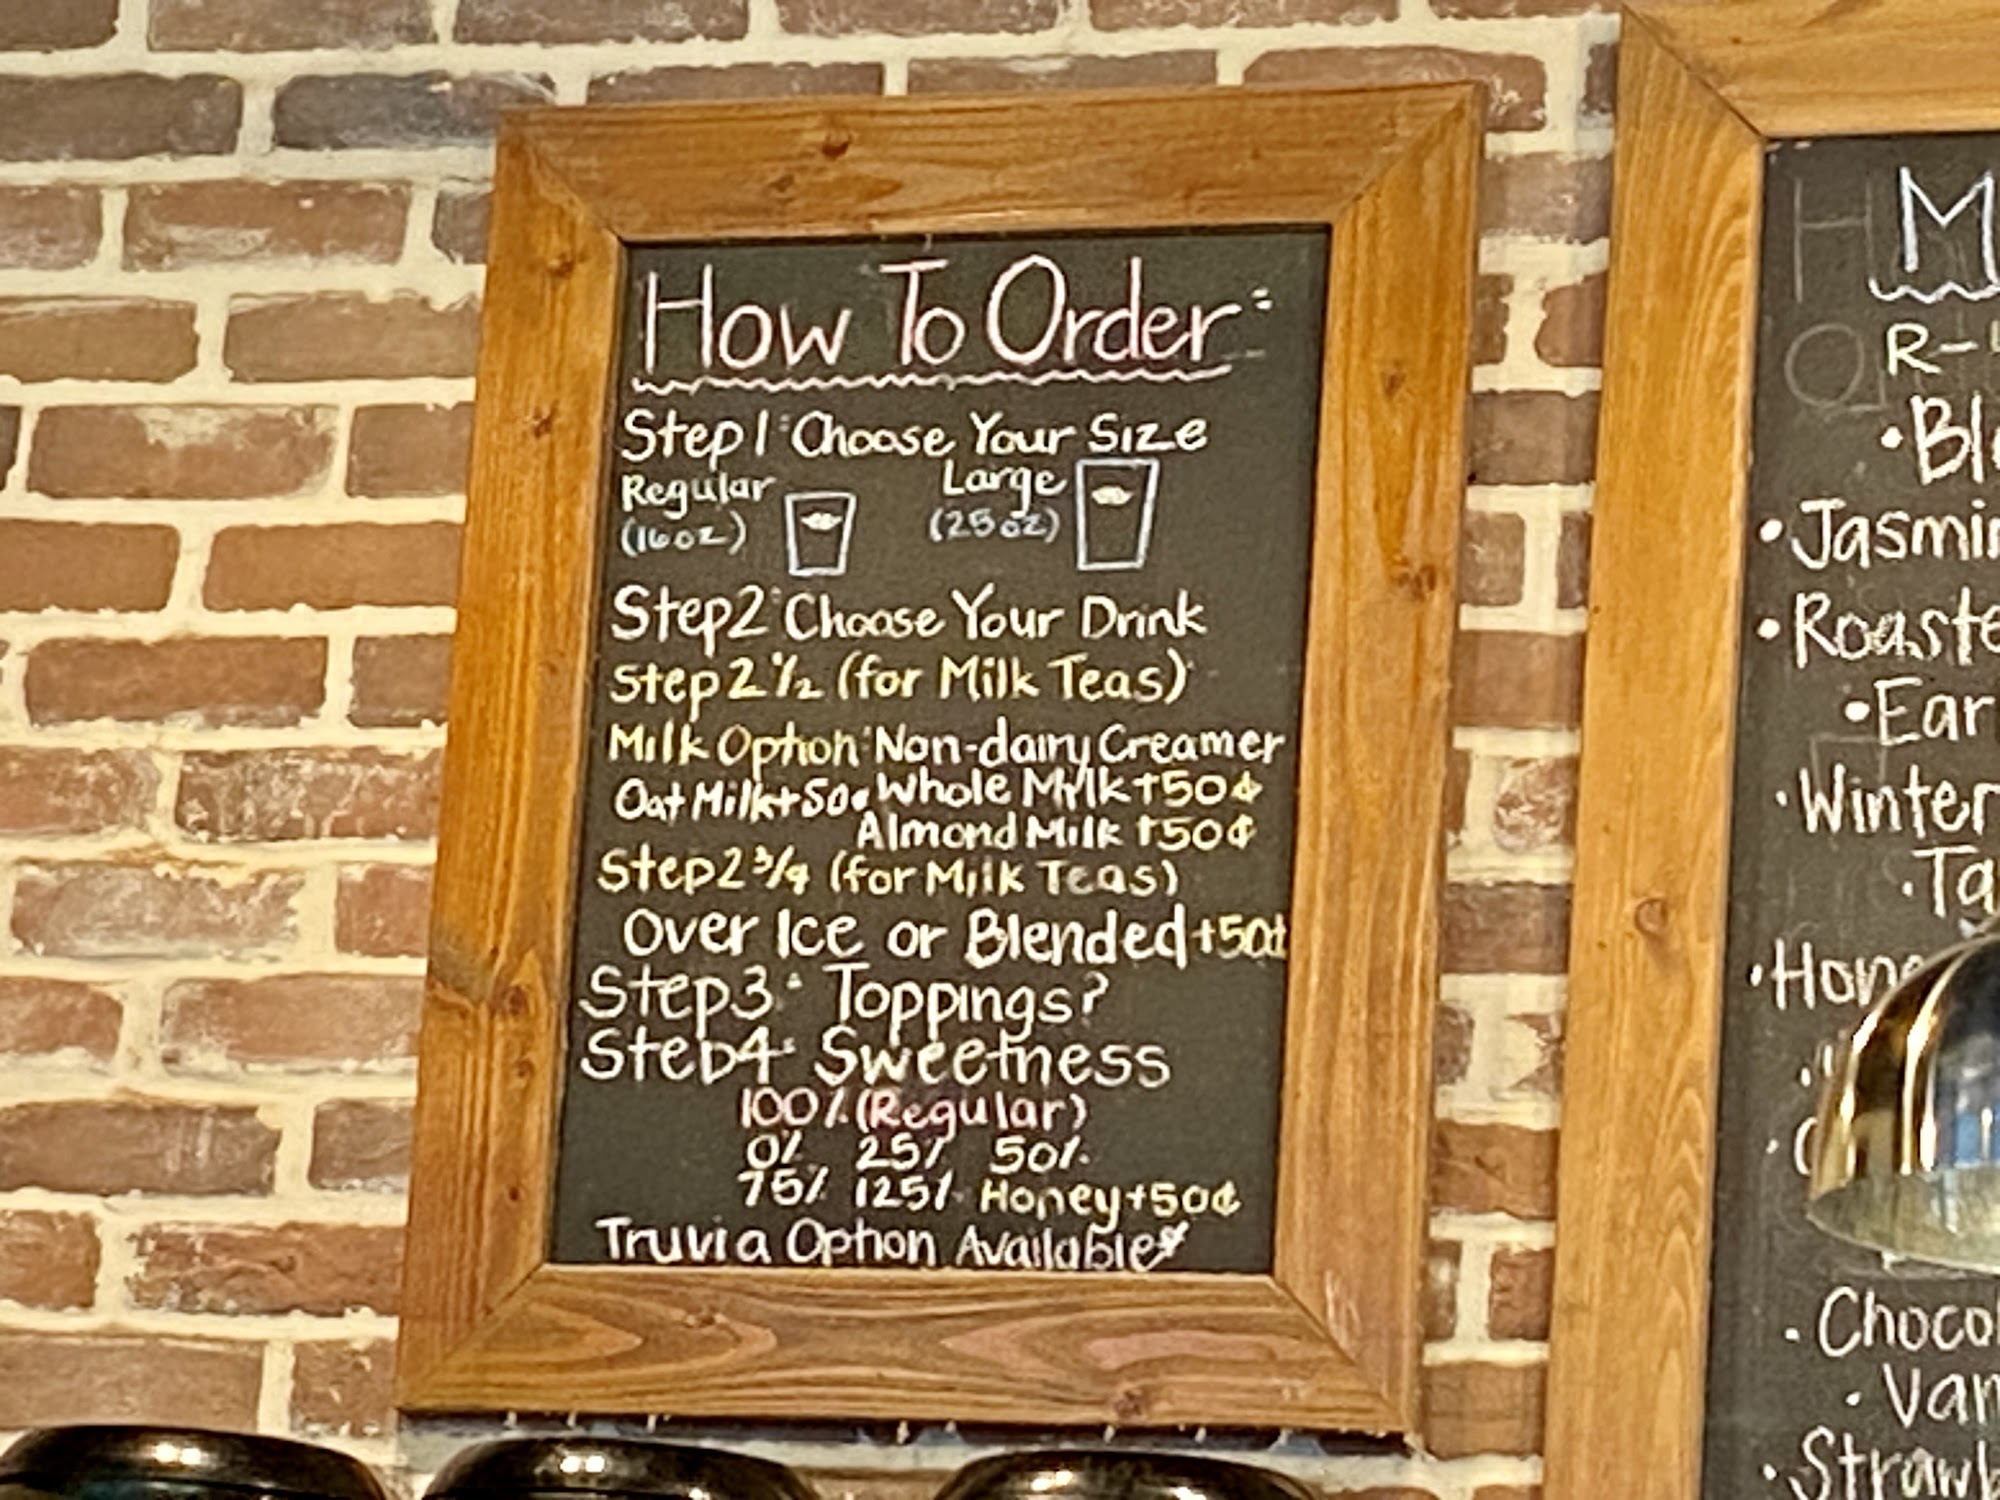 How To Order:
Step 1: Choose Your Size
Regular Large
(16oz) (25oz)
Step 2: Choose Your Drink
Step 2 1/2 (for Milk Teas)
Milk Option: Non-dairy Creamer
Oat Milk +50¢ Whole Milk +50¢
Almond Milk +50¢
Step 2 3/4 (for Milk Teas)
Over Ice or Blended +50¢
Step 3: Toppings?
Step 4: Sweetness
100% (Regular)
0% 25% 50%
75% 125% Honey +50¢
Truvia Option Available*
M
R-
Jasmin
Roaste
Ear
Winter
Ta
Hon
Choco
Van
Strawb